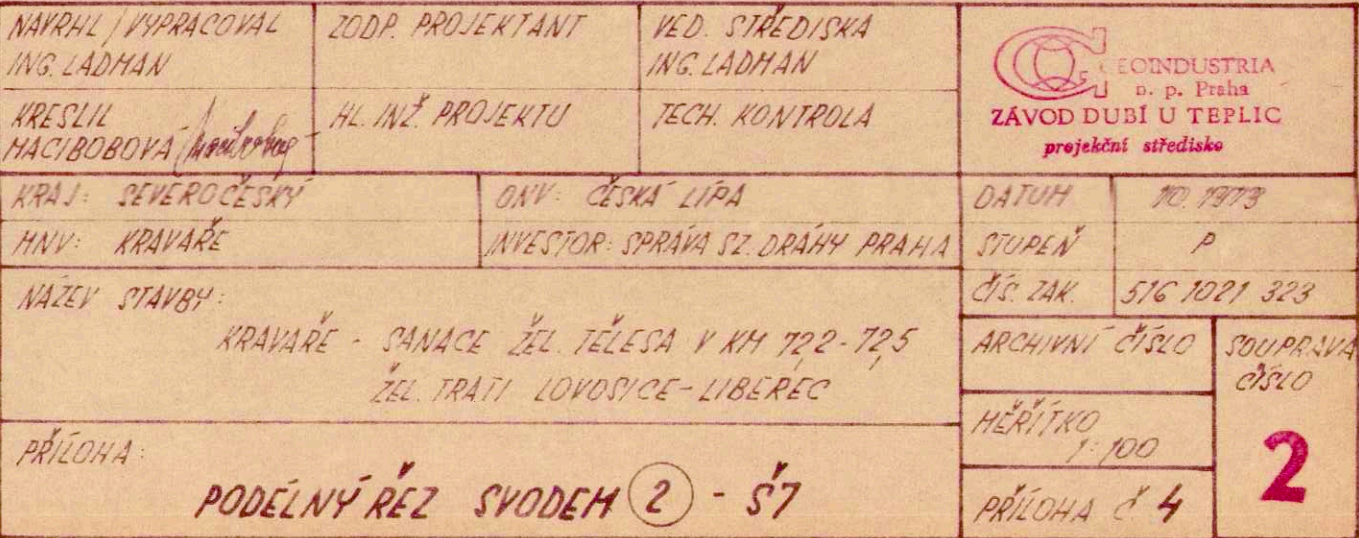 NAVRHL / VYPRACOVAL
ING. LADMAN
ZODP. PROJEKTANT
VED. STŘEDISKA
ING. LADMAN
GEOINDUSTRIA
n. p. Praha
ZÁVOD DUBÍ U TEPLIC
projekční středisko
KRESLIL
MACIBOBOVÁ
HL. INŽ. PROJEKTU
TECH. KONTROLA
KRAJ: SEVEROČESKÝ
ONV: ČESKÁ LÍPA
DATUM 10. 1973
MNV: KRAVAŘE
INVESTOR: SPRÁVA SZ. DRÁHY PRAHA
STUPEŇ P
ČÍS. ZAK. 516 1021 323
NÁZEV STAVBY:
KRAVAŘE - SANACE ŽEL. TĚLESA V KM 72,2-72,5
ŽEL. TRATI LOVOSICE-LIBEREC
ARCHIVNÍ ČÍSLO
SOUPRAVA
ČÍSLO
2
MĚŘÍTKO
1:100
PŘÍLOHA:
PODÉLNÝ ŘEZ SVODEM 2 - Š7
PŘÍLOHA Č 4